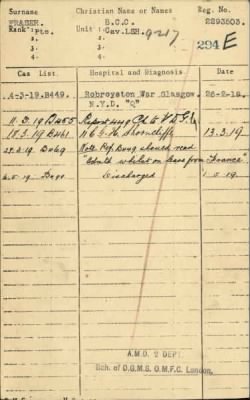 Surname Christian Name or Names Reg. No.
FRASER. B.C.C. 2293503.
Rank: Pte. Unit Cav.LSH. 9217
2. 2. 294 E
3. 3.
4. 4.
Cas List. Hospital and Diagnosis. Date
4-3-19.B449. Robroyston War Glasgow. 26-2-19.
N.Y.D. "S"
11.3.19 B455 Report 449
18.3.19 B461 Shorncliffe 13.3.19
29.3.19. B469 Note Rep. B449 should read
"Admtd whilst on leave from France"
6.5.19 Discharged 1.5.19
A.M.D. 2 DEPT.
Bch. of D.G.M.S. O.M.F.C. London.